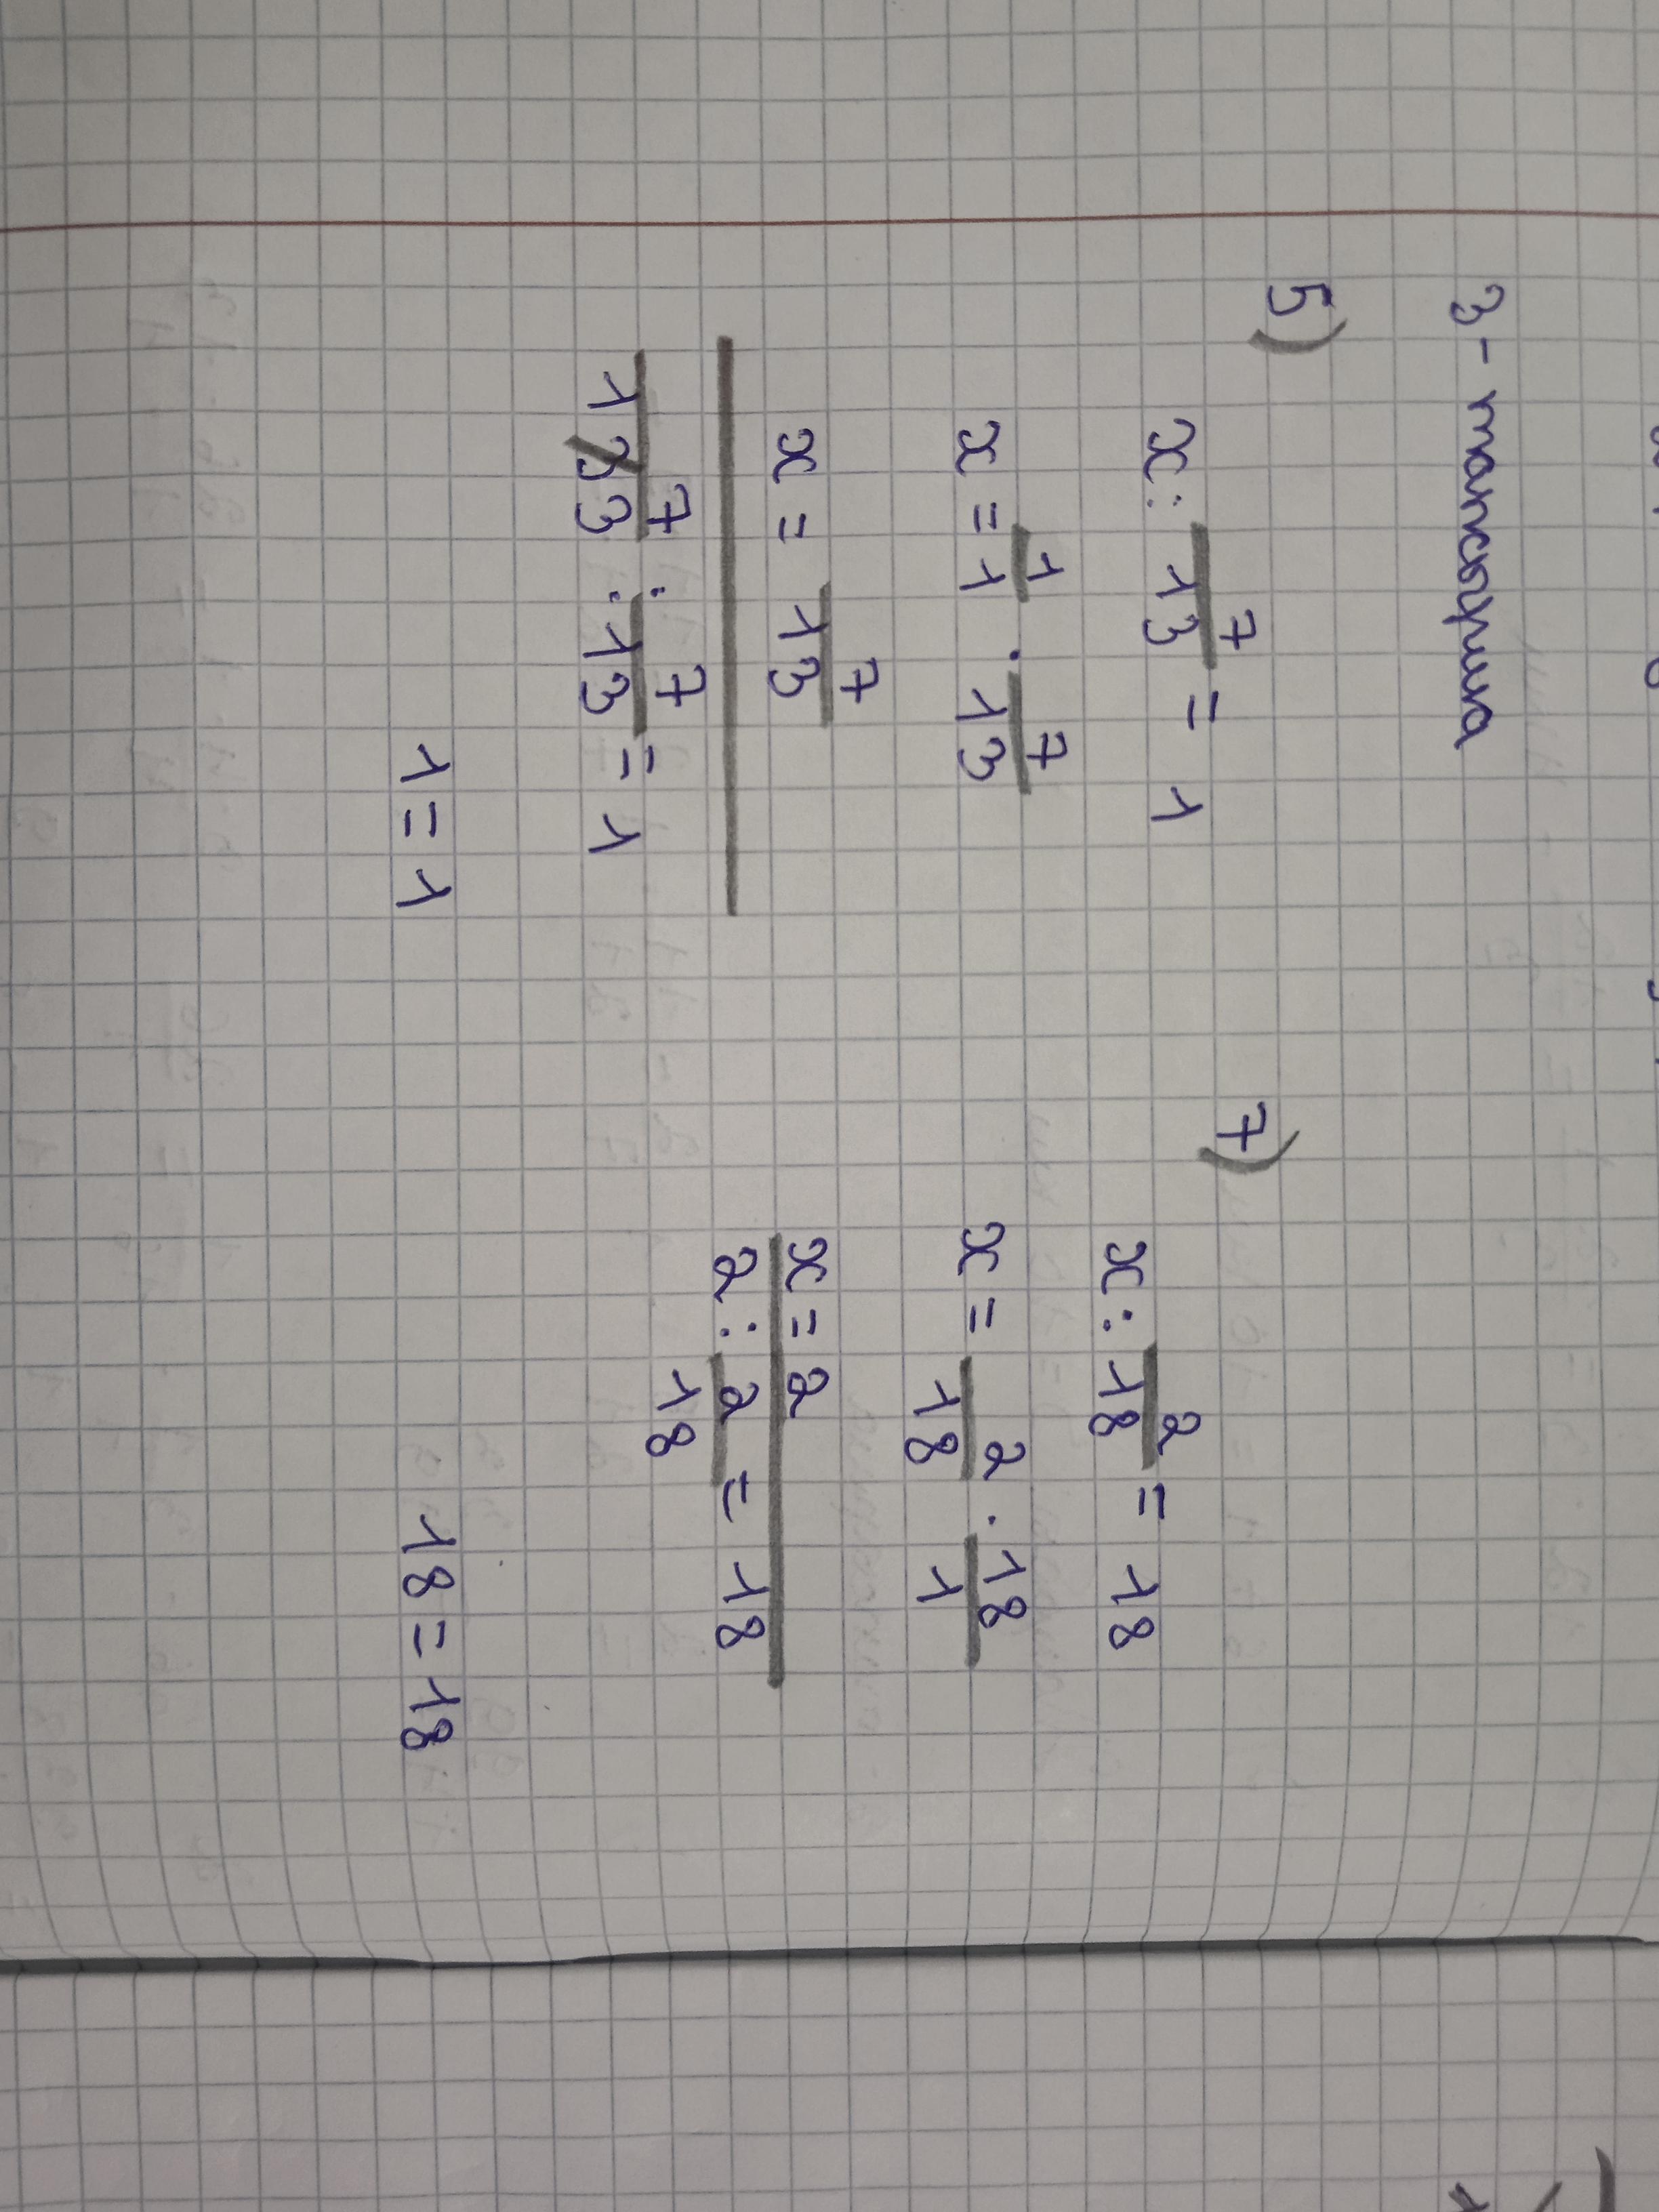 3-тапсырма
5)
x : 7/13 = 1
x = 1/1 · 7/13
x = 7/13
7/13 : 7/13 = 1
1 = 1
7)
x : 2/18 = 18
x = 2/18 · 18/1
x = 2
2 : 2/18 = 18
18 = 18